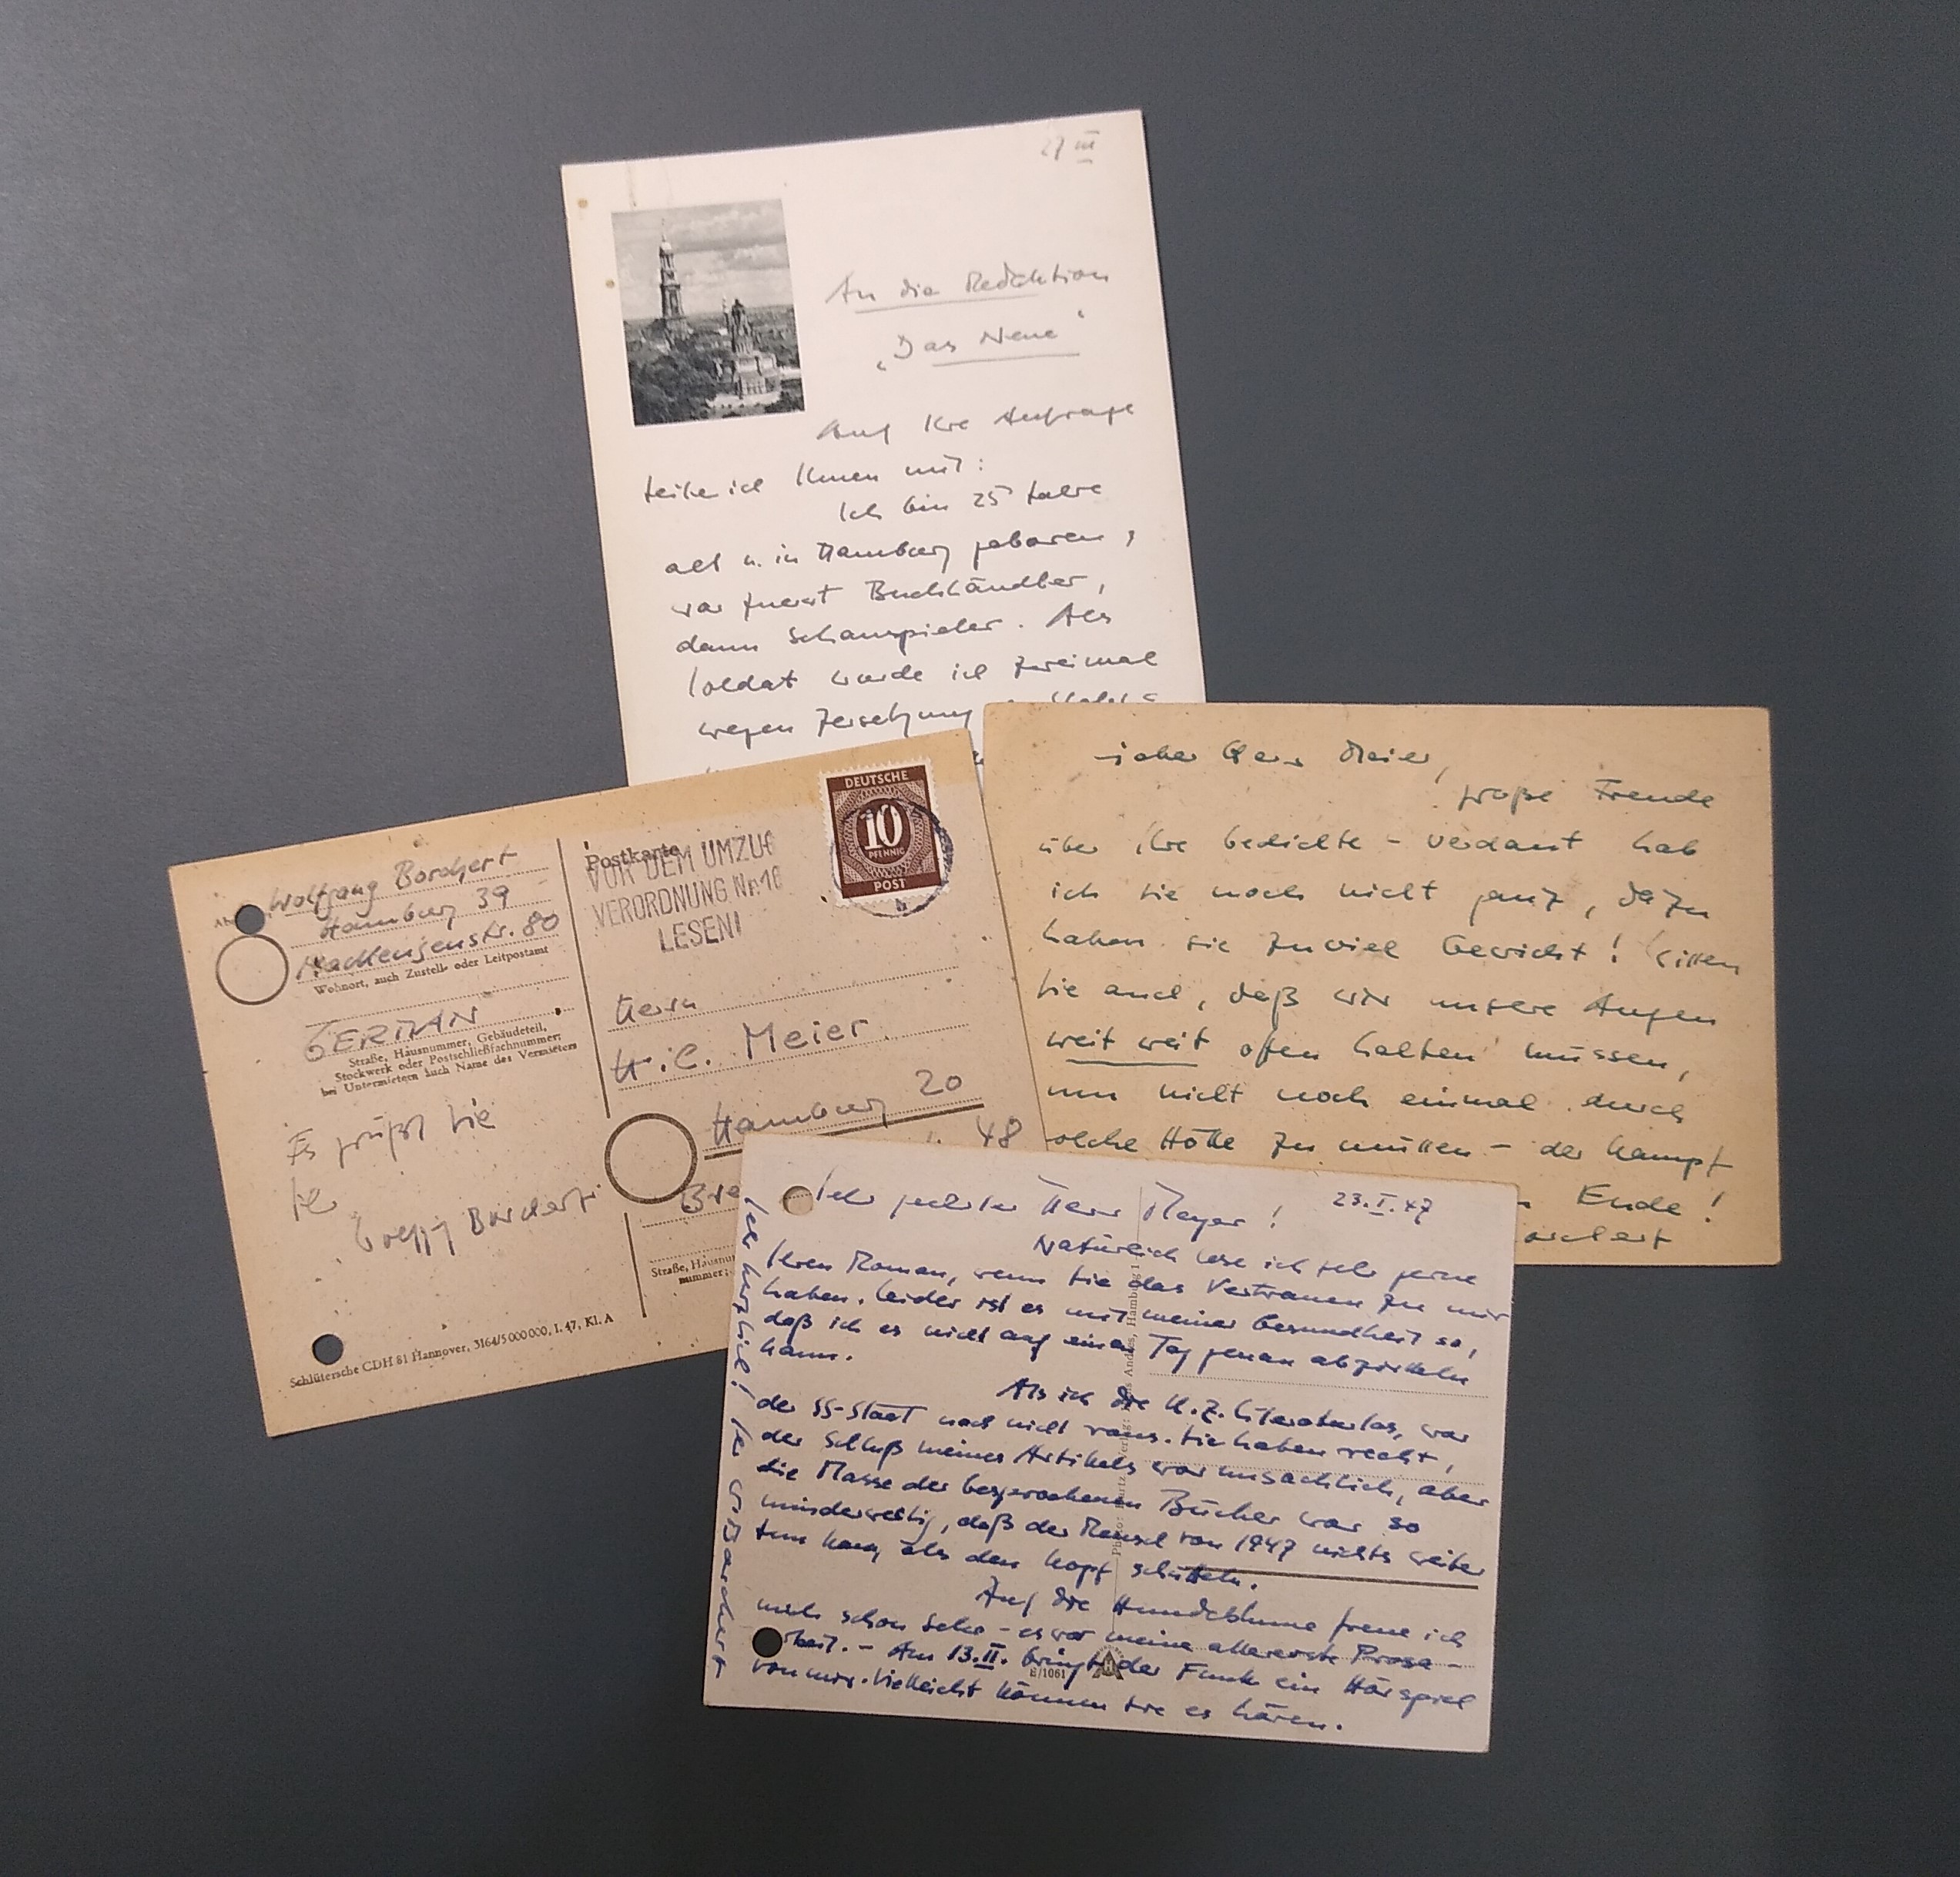 27 III
An die Redaktion
„Das Neue"
Auf Ihre Anfrage
teile ich Ihnen mit:
Ich bin 25 Jahre
alt u. in Hamburg geboren,
war zuerst Buchhändler,
dann Schauspieler. Als
Soldat wurde ich zweimal
wegen Zersetzung
Wolfgang Borchert
Hamburg 39
Mackensenstr. 80
Wohnort, auch Zustell- oder Leitpostamt
GERMAN
Straße, Hausnummer, Gebäudeteil,
Stockwerk oder Postschließfachnummer;
bei Untermietern auch Name des Vermieters
Es grüßt Sie
Ihr
Borchert
Schlütersche CDH 81 Hannover, 3164/5 000 000, I. 47, Kl. A
Postkarte
VOR DEM UMZUG
VERORDNUNG Nr. 16
LESEN!
DEUTSCHE
10
PFENNIG
POST
Herrn
H. C. Meier
Hamburg 20
48
Straße, Hausnu
nummer;
Lieber Herr Meier,
große Freude
über Ihre Gedichte – verdaut hab
ich sie noch nicht ganz, dazu
haben sie zuviel Gewicht! Wissen
Sie auch, daß wir unsere Augen
weit weit offen halten müssen,
um nicht noch einmal durch
solche Hölle zu müssen – der Kampf
Ende!
orchert
Sehr geehrter Herr Meyer! 23.I.47
Natürlich lese ich sehr gerne
Ihren Roman, wenn Sie das Vertrauen zu mir
haben. Leider ist es mit meiner Gesundheit so,
daß ich es nicht auf einen Tag genau abzirkeln
kann.
Als ich die K.Z. Literatur las, war
der SS-Staat noch nicht raus. Sie haben recht,
der Schluß meines Artikels war unsachlich, aber
die Masse der besprochenen Bücher war so
minderwertig, daß der Mensch von 1947 nichts weiter
tun kann, als den Kopf schütteln.
Auf die Hundeblume freue ich
mich schon sehr – es war meine allererste Prosa-
rbeit. – Am 13.II. bringt der Funk ein Hörspiel
von mir. Vielleicht können Sie es hören.
Sehr herzlich! Ihr W Borchert
Hamburg 1
E/1061